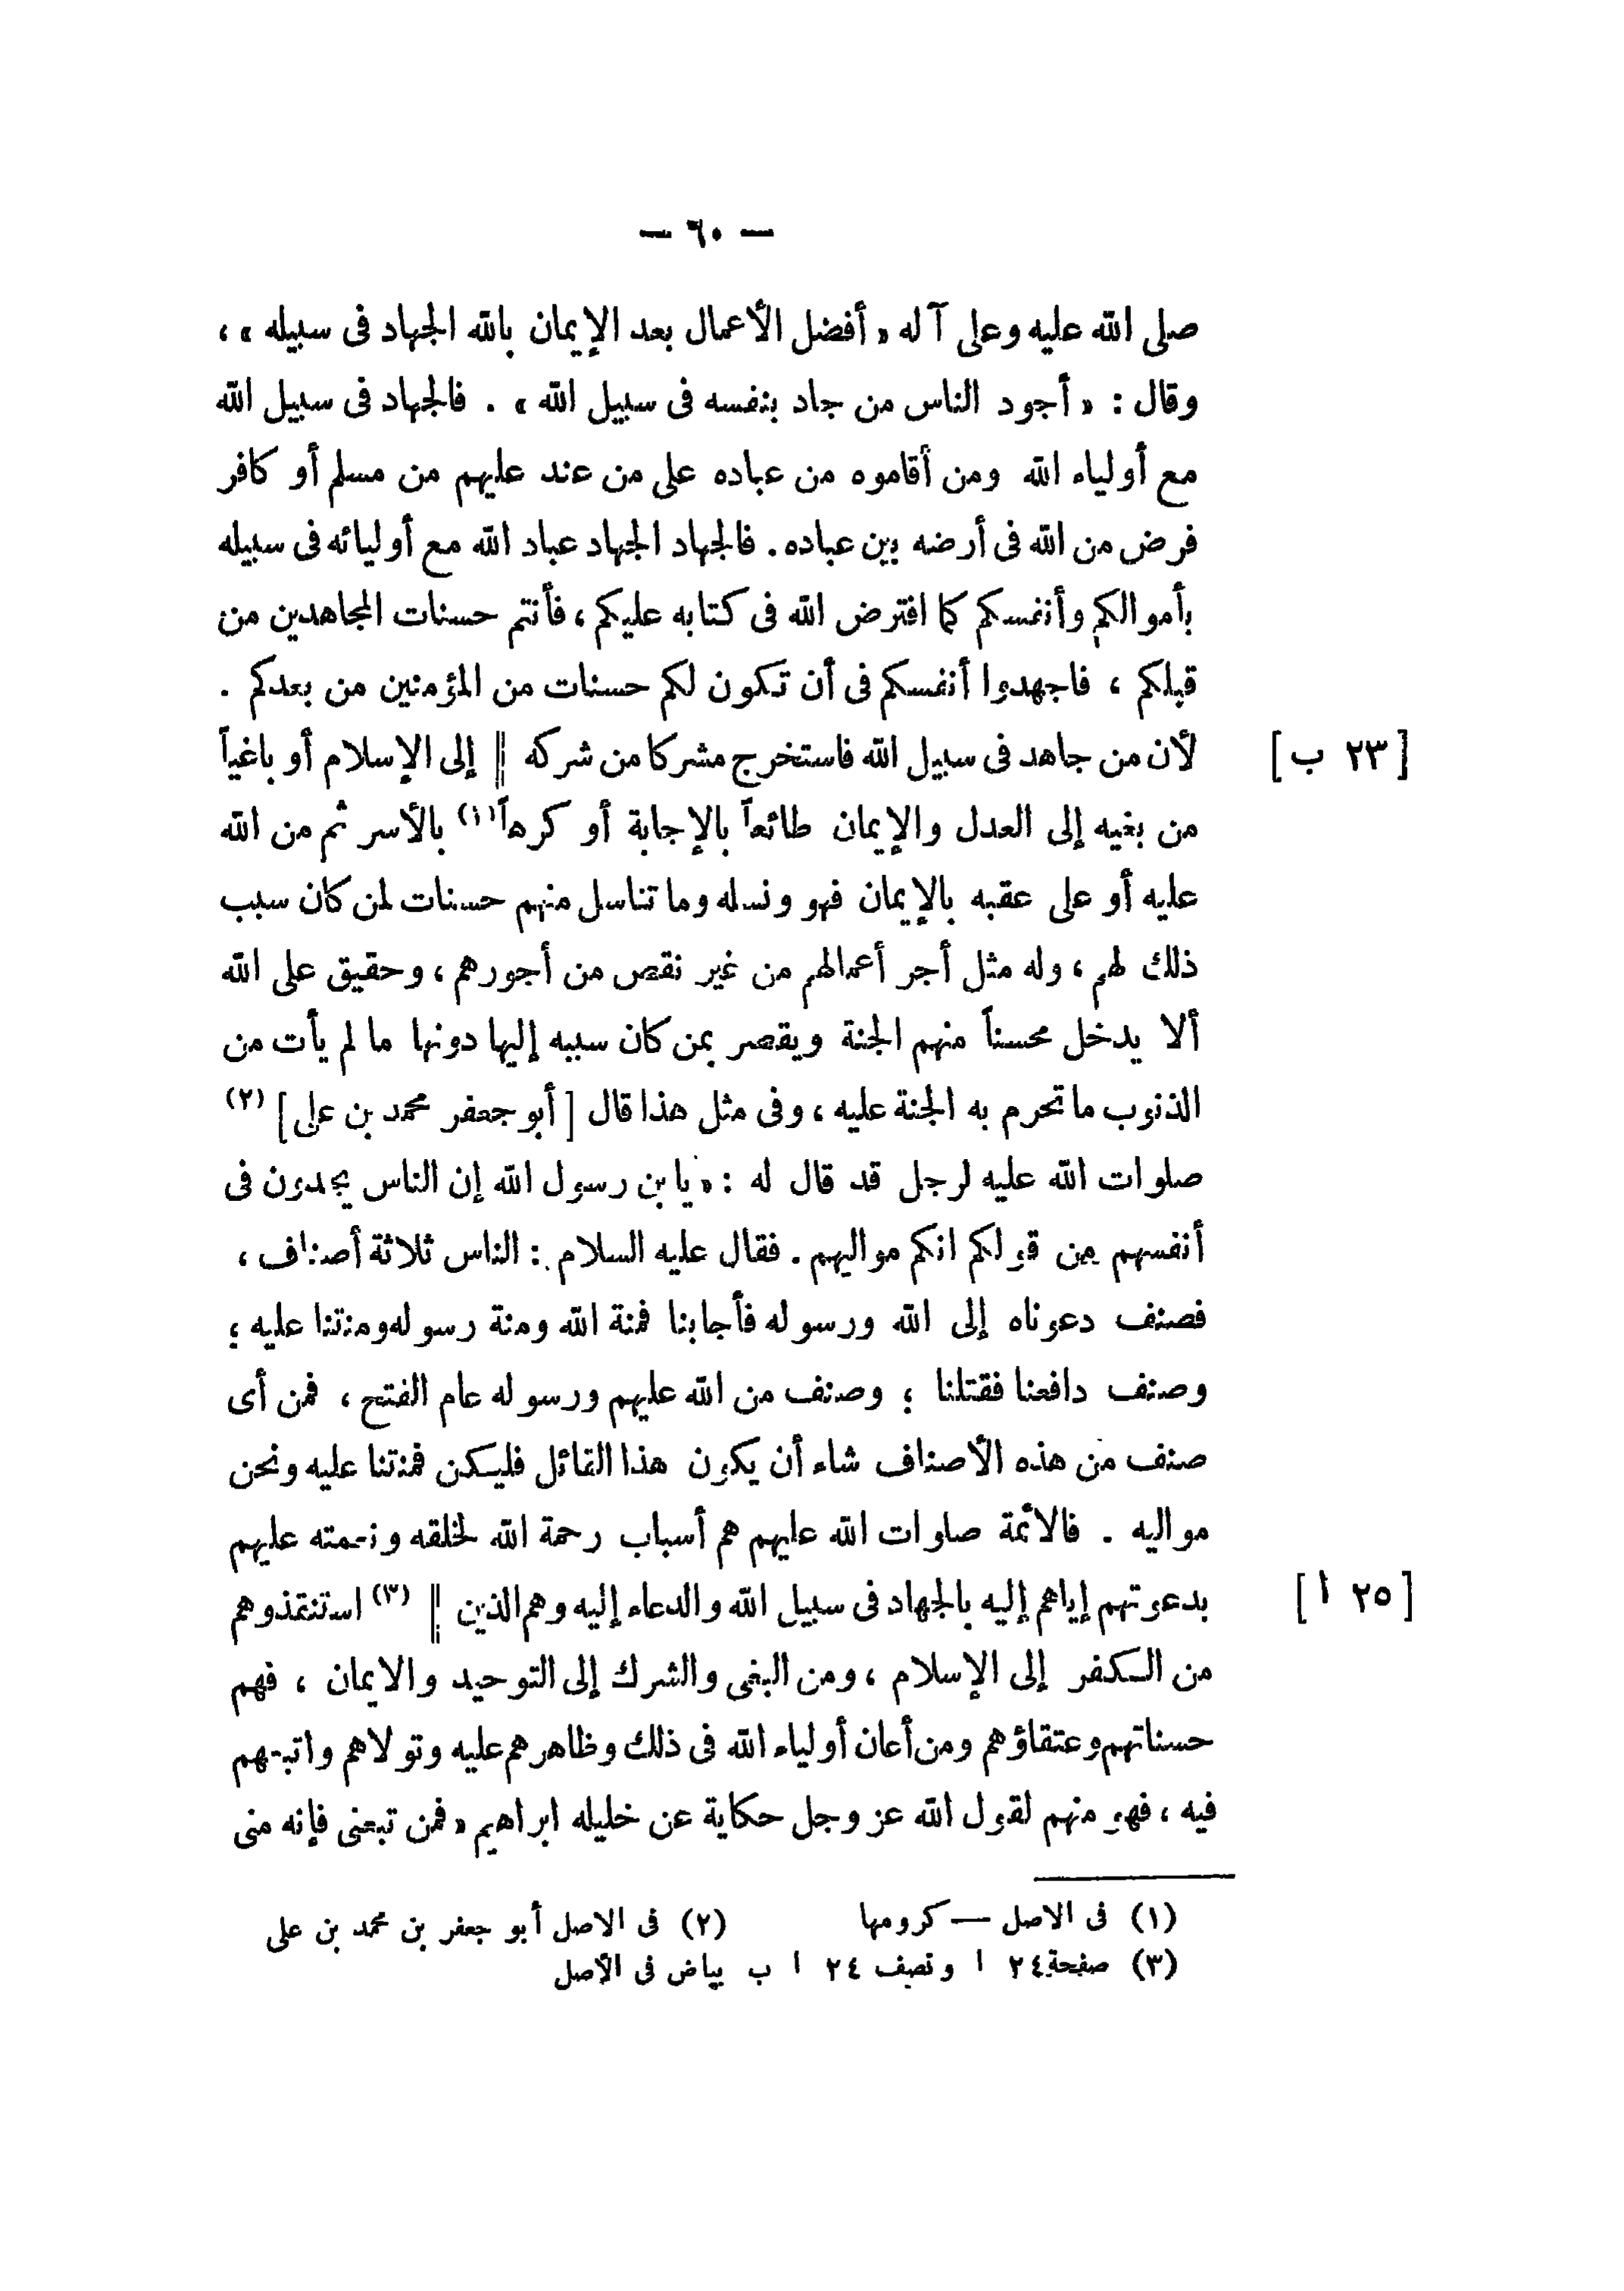 — ٦٠ —
صلى الله عليه وعلى آله « أفضل الأعمال بعد الإيمان بالله الجهاد فى سبيله » ،
وقال : « أجود الناس من جاد بنفسه فى سبيل الله » . فالجهاد فى سبيل الله
مع أولياء الله ومن أقاموه من عباده على من عند عليهم من مسلم أو كافر
فرض من الله فى أرضه بين عباده . فالجهاد الجهاد عباد الله مع أوليائه فى سبيله
بأموالكم وأنفسكم كما افترض الله فى كتابه عليكم ، فأنتم حسنات المجاهدين من
قبلكم ، فاجهدوا أنفسكم فى أن تكون لكم حسنات من المؤمنين من بعدكم .
لأن من جاهد فى سبيل الله فاستخرج مشركا من شركه || إلى الإسلام أو باغياً [ ٢٣ ب ]
من بغيه إلى العدل والإيمان طائعاً بالإجابة أو كرهاً (١) بالأسر ثم من الله
عليه أو على عقبه بالإيمان فهو ونسله وما تناسل منهم حسنات لمن كان سبب
ذلك لهم ، وله مثل أجر أعمالهم من غير نقص من أجورهم ، وحقيق على الله
ألا يدخل محسناً منهم الجنة ويقصر بمن كان سببه إليها دونها ما لم يأت من
الذنوب ما تحرم به الجنة عليه ، وفى مثل هذا قال [ أبو جعفر محمد بن على ] (٢)
صلوات الله عليه لرجل قد قال له : « يا بن رسول الله إن الناس يجدون فى
أنفسهم من قولكم انكم مواليهم . فقال عليه السلام : الناس ثلاثة أصناف ،
فصنف دعوناه إلى الله ورسوله فأجابنا فمنة الله ومنة رسوله ومنتنا عليه ؛
وصنف دافعنا فقتلنا ؛ وصنف من الله عليهم ورسوله عام الفتح ، فمن أى
صنف من هذه الأصناف شاء أن يكون هذا القائل فليكن فمنتنا عليه ونحن
مواليه . فالأئمة صلوات الله عليهم هم أسباب رحمة الله لخلقه ونعمته عليهم
بدعوتهم إياهم إليه بالجهاد فى سبيل الله والدعاء إليه وهم الذين || (٣) استنقذوهم [ ٢٥ ا ]
من الكفر إلى الإسلام ، ومن البغى والشرك إلى التوحيد والايمان ، فهم
حسناتهم وعتقاؤهم ومن أعان أولياء الله فى ذلك وظاهرهم عليه وتولاهم واتبعهم
فيه ، فهو منهم لقول الله عز وجل حكاية عن خليله ابراهيم « فمن تبعنى فإنه منى
(١) فى الاصل — كرومها (٢) فى الاصل أبو جعفر بن محمد بن على
(٣) صفحة ٢٤ ا ونصف ٢٤ ا ب بياض فى الأصل